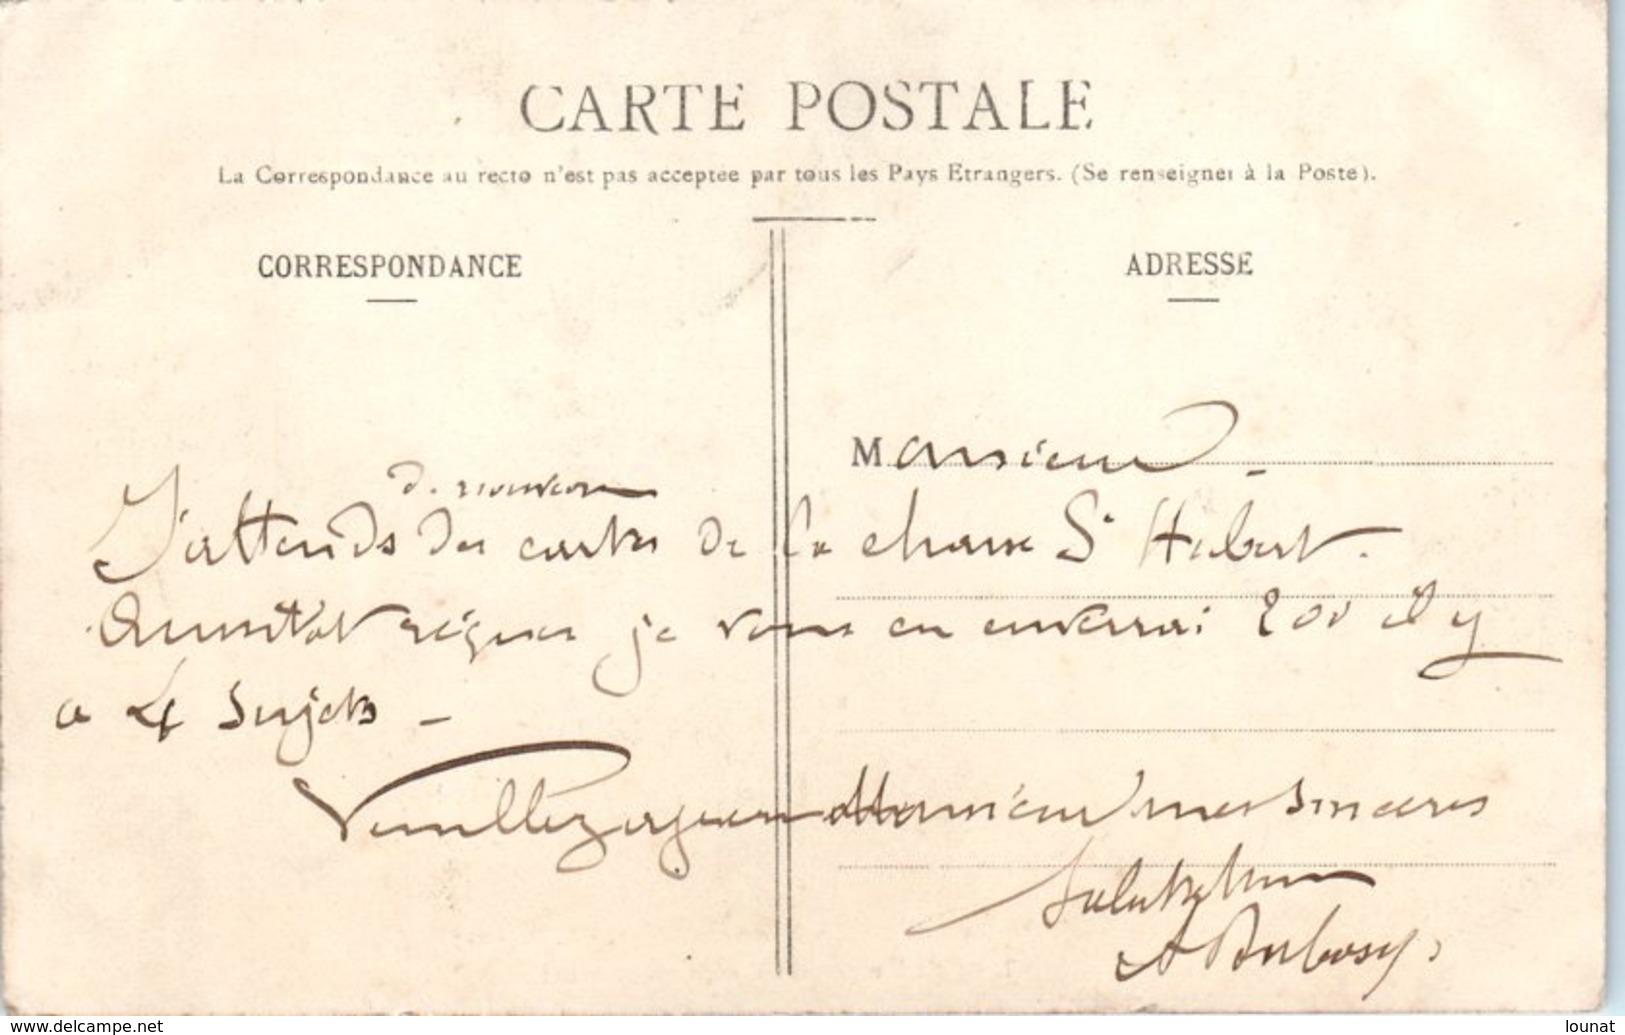 CARTE POSTALE
La Correspondance au recto n'est pas acceptée par tous les Pays Etrangers. (Se renseigner à la Poste).
CORRESPONDANCE
ADRESSE
Monsieur.
de nouveau
J'attends des cartes de la chasse St Hubert.
Aussitôt reçues je vous en enverrai 200 il y
a 4 sujets -
Veuillez agréer Monsieur mes sincères
salutations
A Dubosq.
www.delcampe.net
lounat